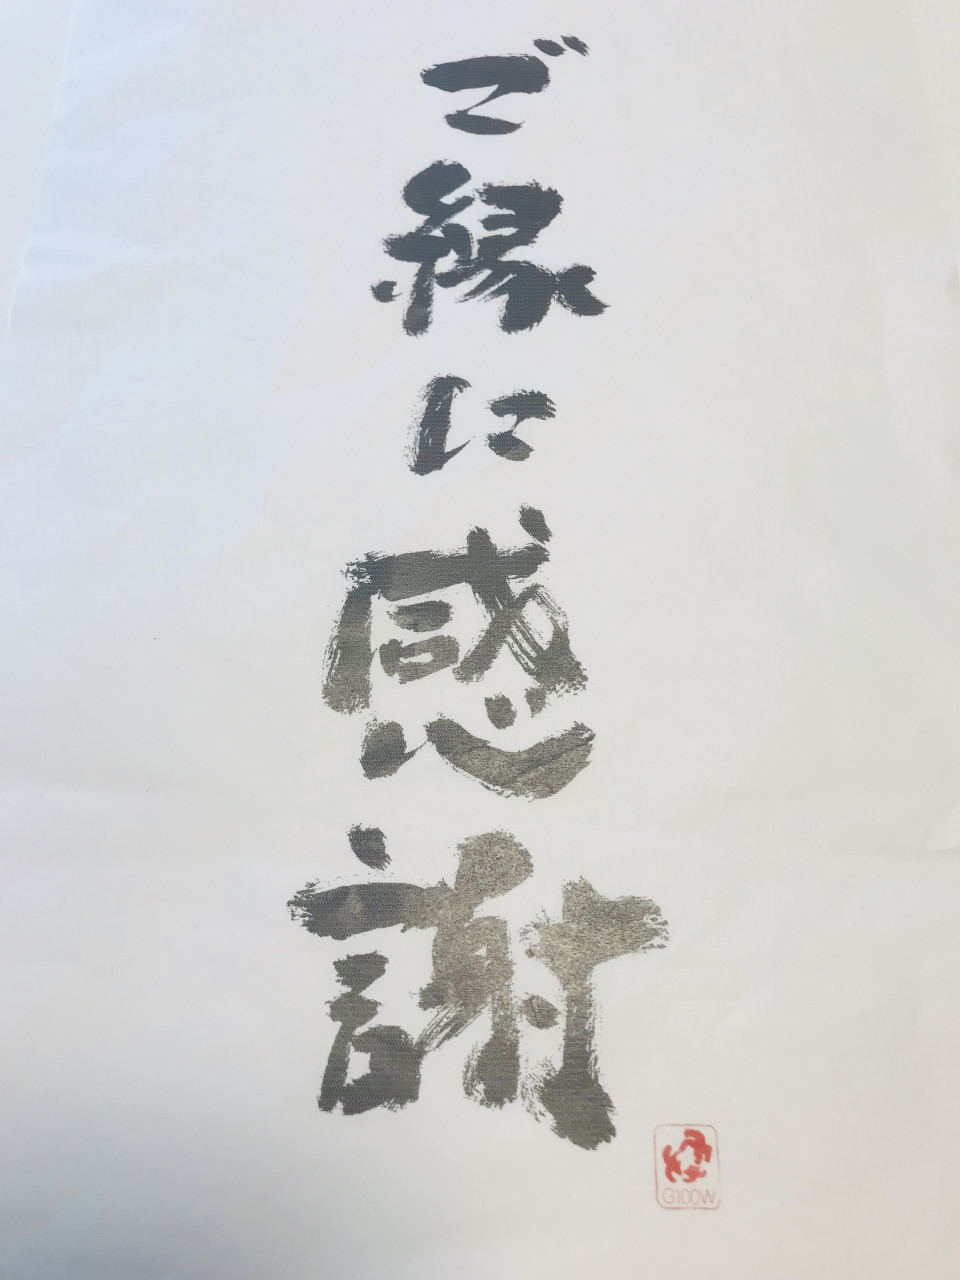 ご縁に感謝
G100W